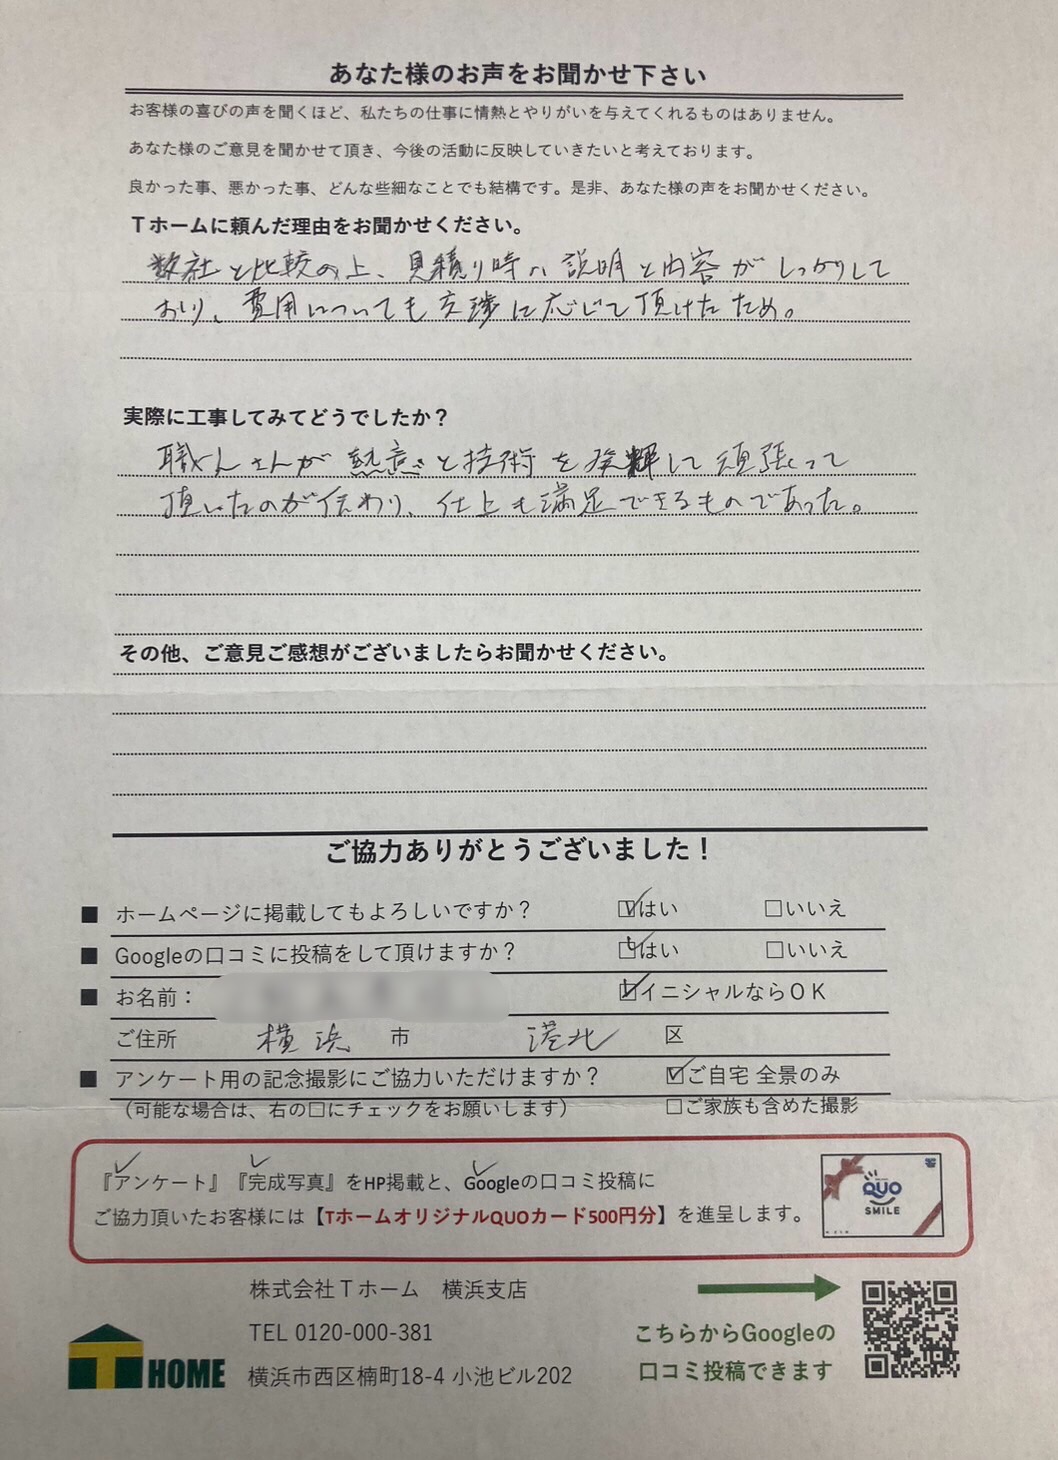 あなた様のお声をお聞かせ下さい
お客様の喜びの声を聞くほど、私たちの仕事に情熱とやりがいを与えてくれるものはありません。
あなた様のご意見を聞かせて頂き、今後の活動に反映していきたいと考えております。
良かった事、悪かった事、どんな些細なことでも結構です。是非、あなた様の声をお聞かせください。
Tホームに頼んだ理由をお聞かせください。
数社と比較の上、見積り時の説明と内容がしっかりして
おり、費用についても交渉に応じて頂けたため。
実際に工事してみてどうでしたか？
職人さんが熱意と技術を発揮して頑張って
頂いたのが伝わり、仕上も満足できるものであった。
その他、ご意見ご感想がございましたらお聞かせください。
ご協力ありがとうございました！
■ ホームページに掲載してもよろしいですか？ ☑はい □いいえ
■ Googleの口コミに投稿をして頂けますか？ ☑はい □いいえ
■ お名前： ☑イニシャルならOK
ご住所 横浜 市 港北 区
■ アンケート用の記念撮影にご協力いただけますか？ ☑ご自宅 全景のみ
（可能な場合は、右の□にチェックをお願いします） □ご家族も含めた撮影
『アンケート』『完成写真』をHP掲載と、Googleの口コミ投稿に
ご協力頂いたお客様には【TホームオリジナルQUOカード500円分】を進呈します。
QUO
SMILE
株式会社Tホーム 横浜支店
TEL 0120-000-381
横浜市西区楠町18-4 小池ビル202
T HOME
こちらからGoogleの
口コミ投稿できます